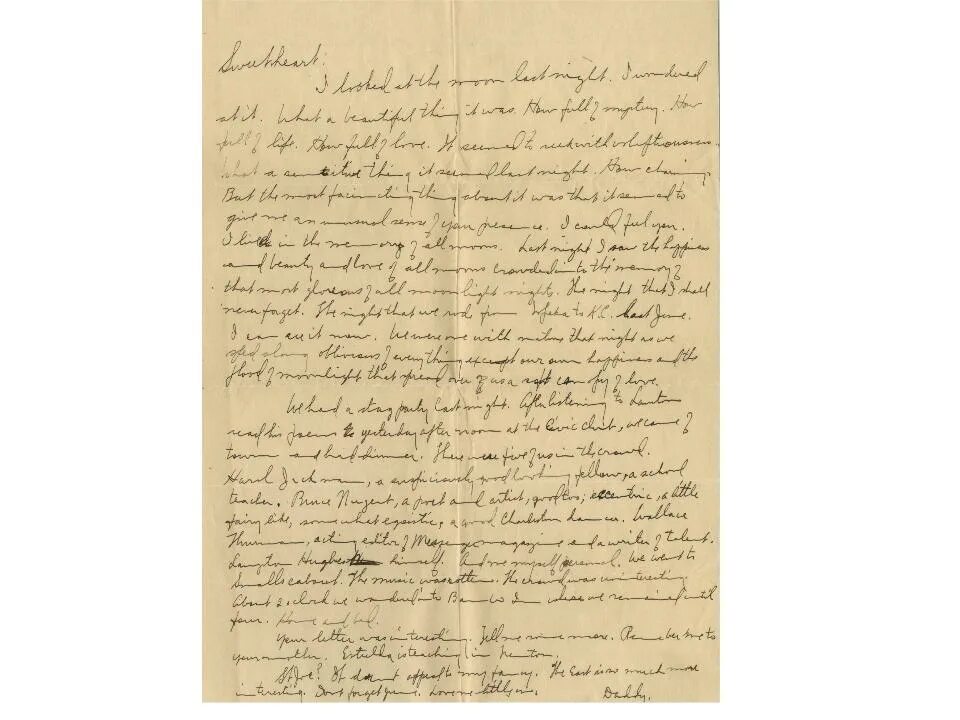 Sweetheart:
I looked at the moon last night. I wondered
at it. What a beautiful thing it was. How full of mystery. How
full of life. How full of love. It seemed to reek with voluptuousness.
What a sensitive thing it seemed last night. How charming.
But the most fascinating thing about it was that it seemed to
give me an unusual sense of your presence. I could feel you.
I lived in the memory of all moons. Last night I saw the happiness
and beauty and love of all moons crowded into the memory of
that most glorious of all moonlight nights. The night that I shall
never forget. The night that we rode from Topeka to K.C. last June.
I can see it now. We were one with that night as we
sped along oblivious of everything except our own happiness and the
flood of moonlight that spread over us a soft canopy of love.
We had a stag party last night. After listening to Langston
read his poems yesterday afternoon at the Civic Club, we came
town and had dinner. There were five of us in the crowd.
Harold Jackman, a suspiciously good looking fellow, a school
teacher. Bruce Nugent, a poet and artist, good too; eccentric, a little
fairylike, somewhat egoistic, a good Charleston dancer. Wallace
Thurman, acting editor of Messenger magazine and a writer of talent.
Langston Hughes himself. And me myself personal. We went to
Smalls cabaret. The music was rotten. The crowd was uninteresting.
About 2 o'clock we wandered into Bamboo Inn where we remained until
four. Home and bed.
Your letter was interesting. Tell me some more. Remember me to
your mother. Estella is teaching in Newton.
St. Joe? It doesn't appeal to my fancy. The East is so much more
interesting. Don't forget June. Love me
Daddy.